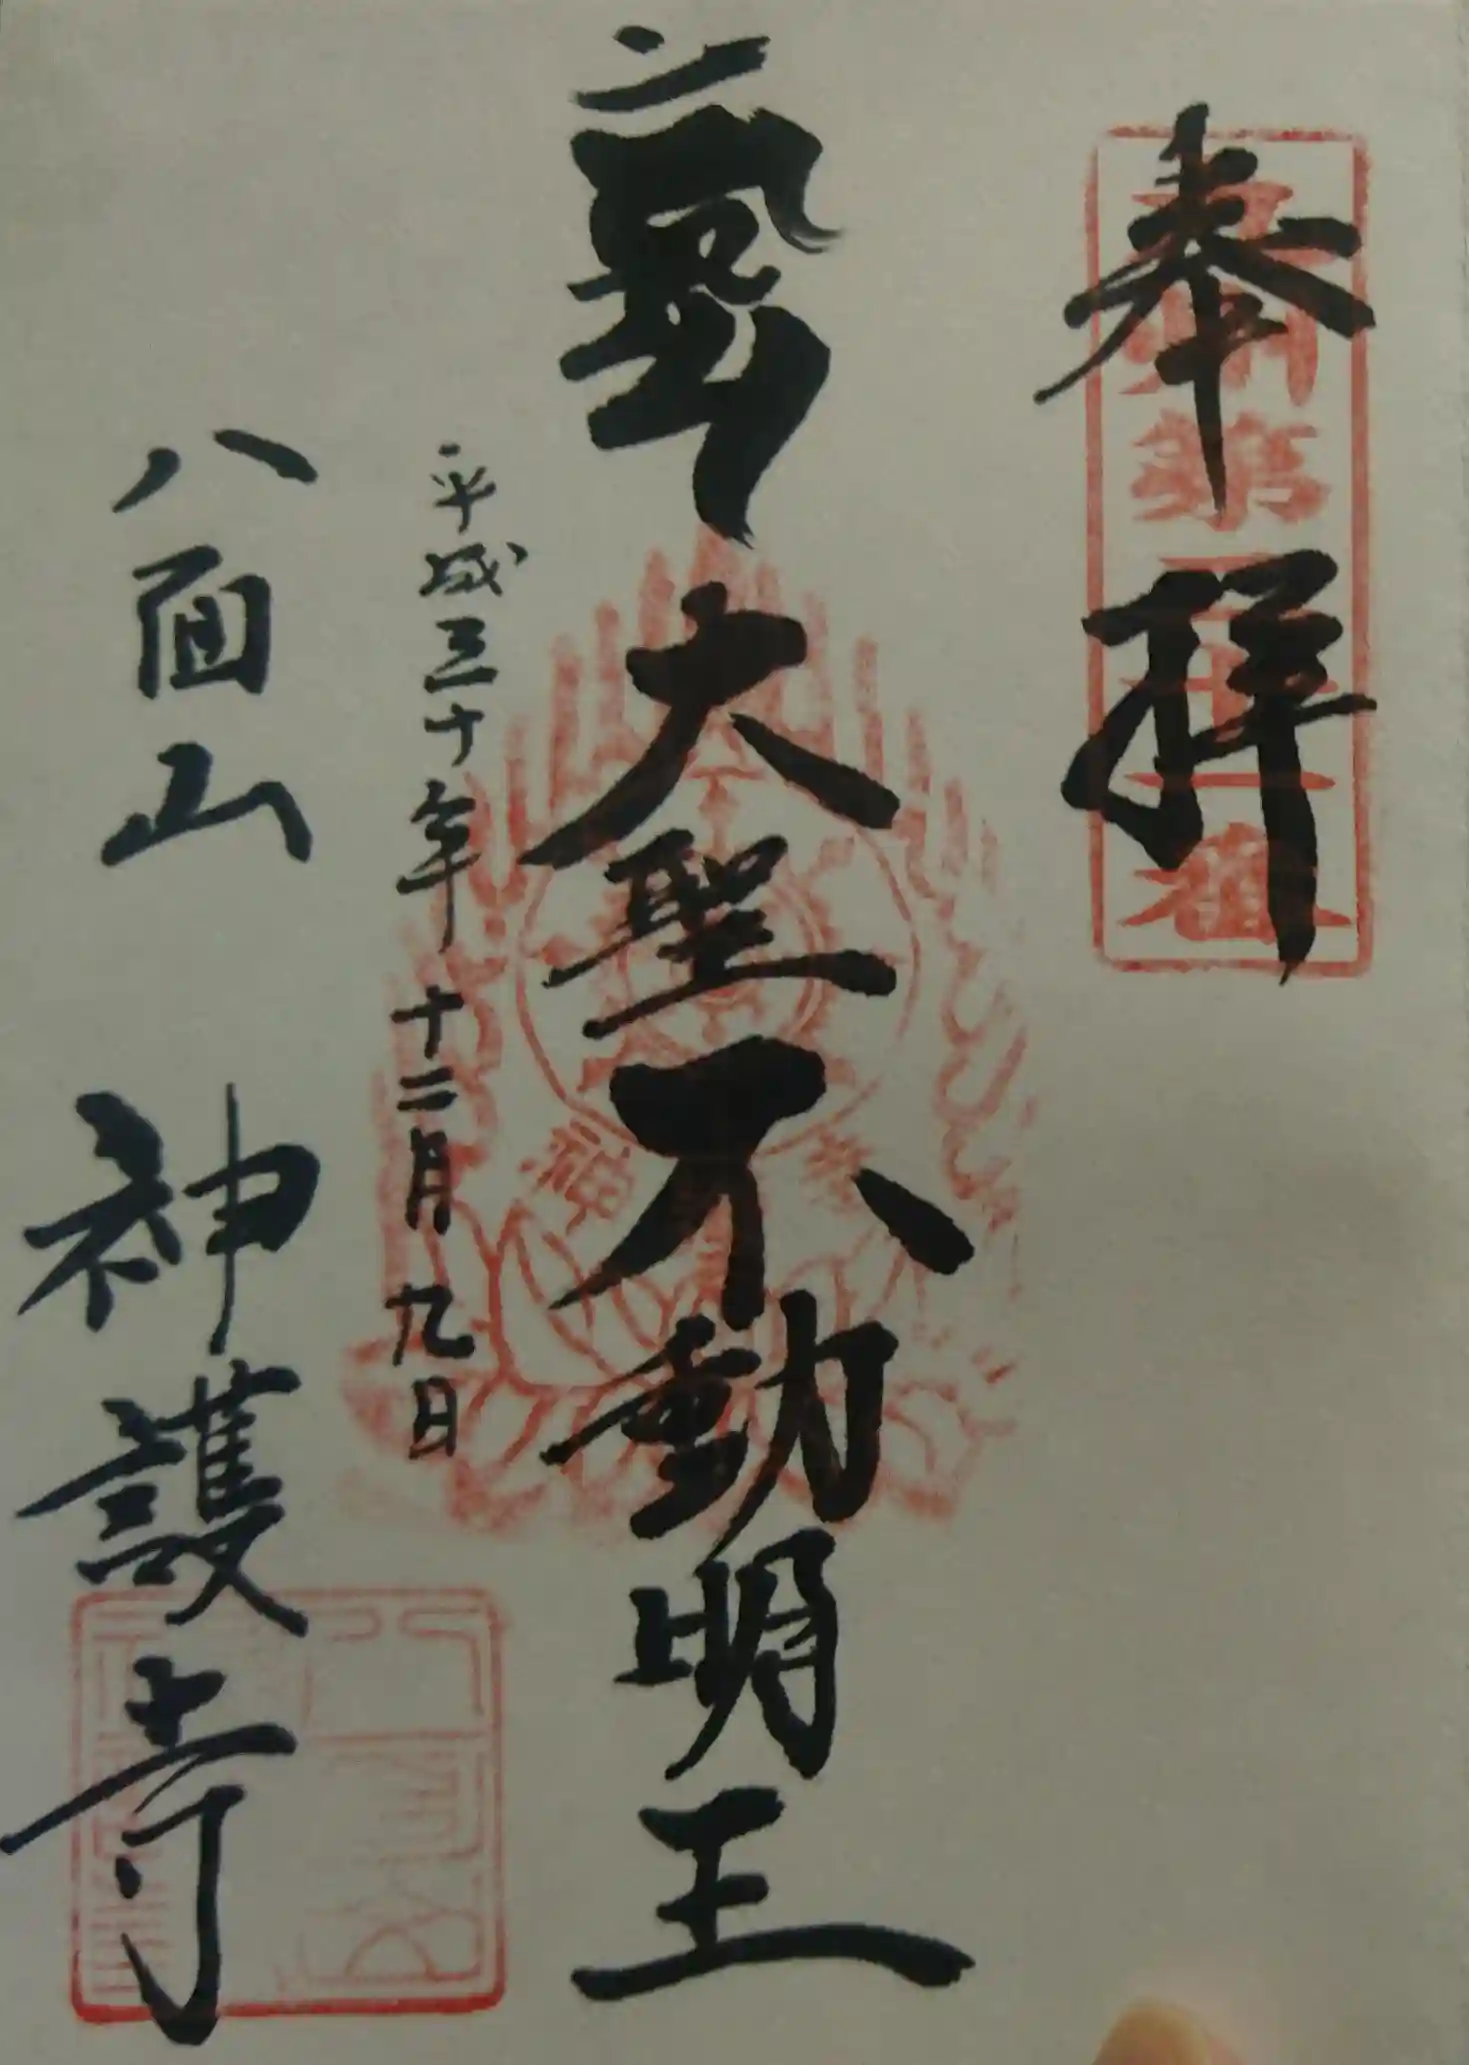 奉拝
大聖不動明王
平成三十年十二月九日
八面山 神護寺